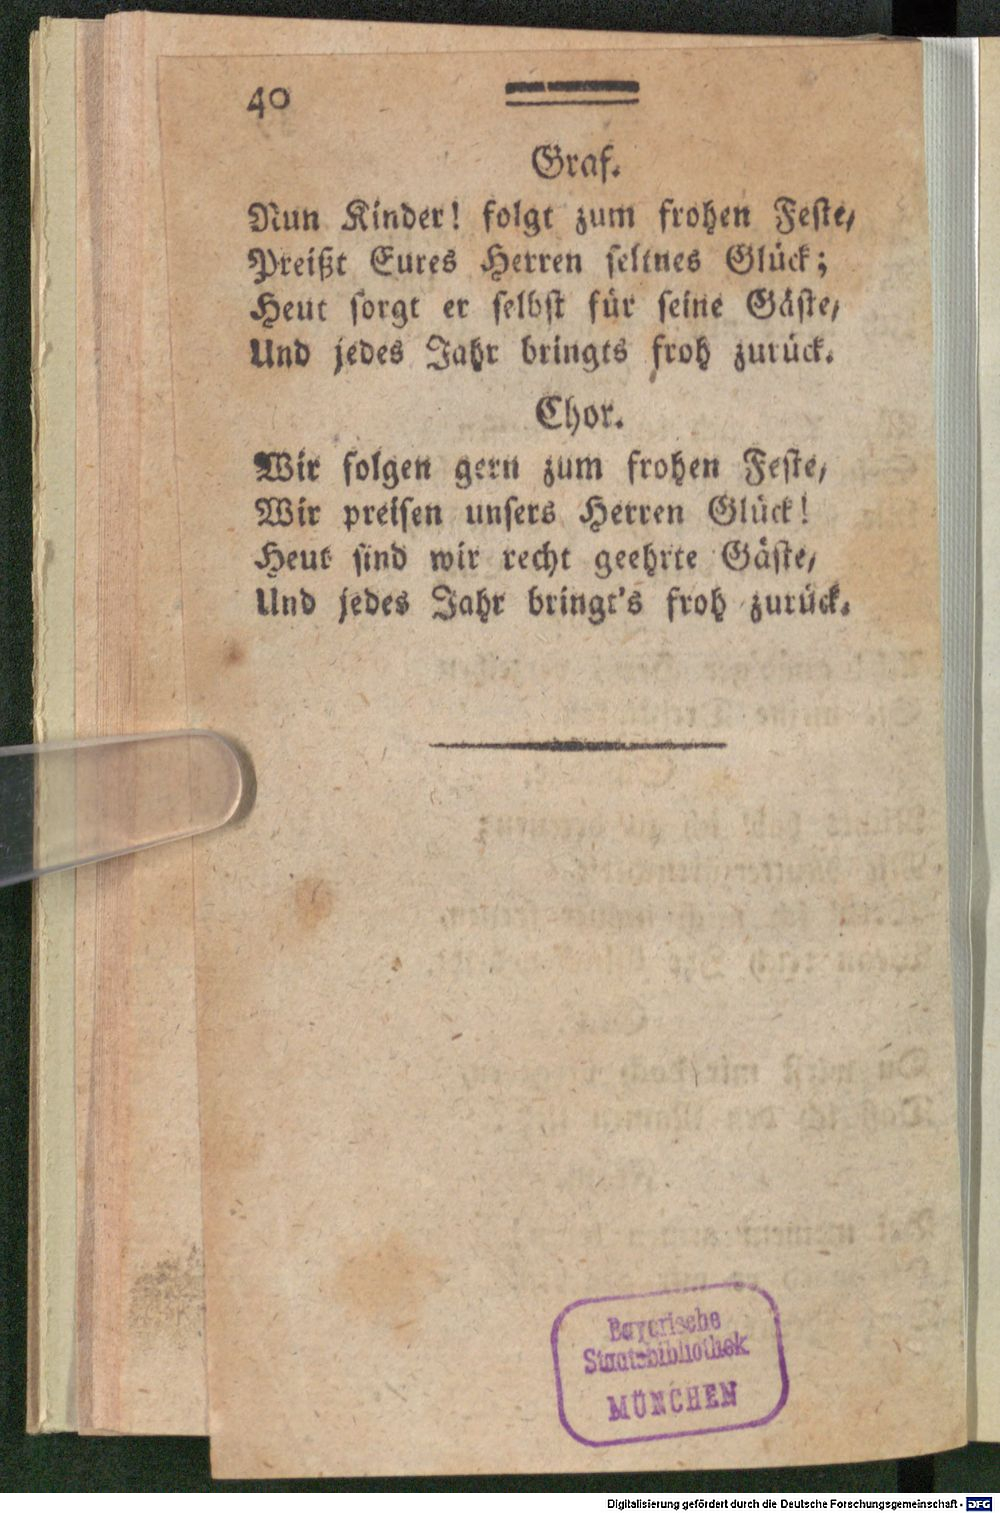 40
Graf.
Nun Kinder! folgt zum frohen Feste,
Preißt Eures Herren seltnes Glück;
Heut sorgt er selbst für seine Gäste,
Und jedes Jahr bringts froh zurück.
Chor.
Wir folgen gern zum frohen Feste,
Wir preisen unsers Herren Glück!
Heut sind wir recht geehrte Gäste,
Und jedes Jahr bringt's froh zurück.
Bayerische
Staatsbibliothek
MÜNCHEN
Digitalisierung gefördert durch die Deutsche Forschungsgemeinschaft - DFG